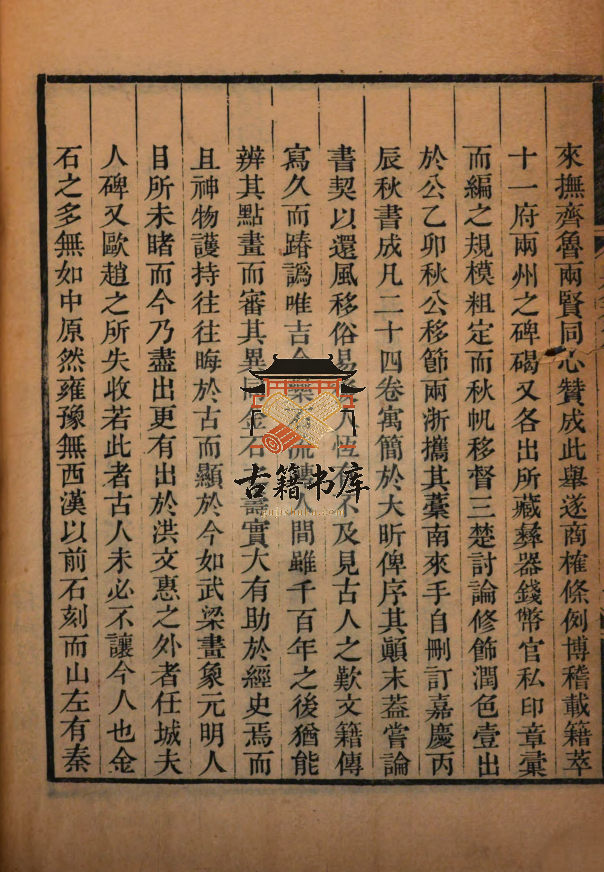 來撫齊魯兩賢同心贊成此舉遂商榷條例博稽載籍萃
十一府兩州之碑碣又各出所藏彝器錢幣官私印章彙
而編之規模粗定而秋帆移督三楚討論修飾潤色壹出
於公乙卯秋公移節兩浙攜其藁南來手自刪訂嘉慶丙
辰秋書成凡二十四卷寓簡於大昕俾序其顛末葢嘗論
書契以還風移俗易人恆有不及見古人之歎文籍傳
寫久而踳譌唯吉金樂石流轉人間雖千百年之後猶能
辨其點畫而審其異同金石壽實大有助於經史焉而
且神物護持往往晦於古而顯於今如武梁畫象元明人
目所未睹而今乃盡出更有出於洪文惠之外者任城夫
人碑又歐趙之所失收若此者古人未必不讓今人也金
石之多無如中原然雍豫無西漢以前石刻而山左有秦
古籍书库